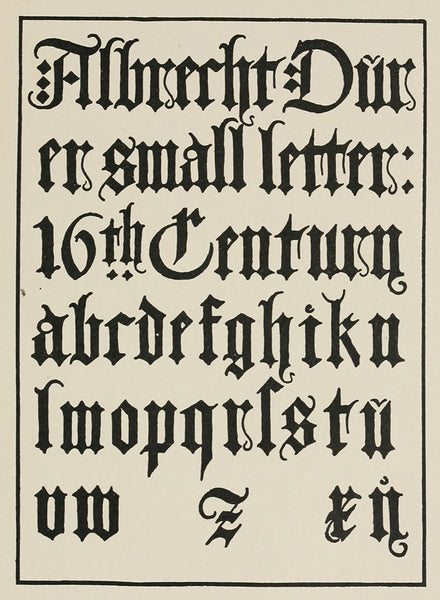 Albrecht Dür
er small letter:
16th Century
abcdefghikn
lmopqrſstü
vw z xẙ